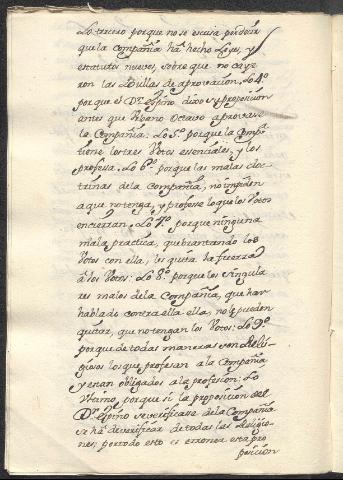 Lo tercero porque no se escusa por decir
que la Compañia ha hecho Leyes, y
estatutos nuevos, sobre que no caye
ron las Bullas de aprovacion. Lo 4º.
porque el Dr. Espino dixo su proposicion
antes que Urbano Octavo aprovase
la Compañia: Lo 5º. porque la Compª.
tiene los tres Votos essenciales, y los
professa. Lo 6º. porque las malas doc-
trinas de la Compañia, no impiden
a que no tenga, y profese lo que los Votos
encierran. Lo 7º. porque ninguna
mala practica, quebrantando los
Votos con ella, les quita la fuerza
á los Votos: Lo 8º. porque los singula
res males de la Compañia, que han
hablado contra ella, no le pueden
quitar, que no tengan los Votos: Lo 9º.
porque de todas maneras son Reli-
giosos los que profesan a la Compañia
y estan obligados a la profesion: Lo
Ultimo, porque si la proposicion del
Dr. Espino se verificase de la Compañia
se há de verificar de todas las Religio-
nes; por todo esto es erronea esta pro
posicion